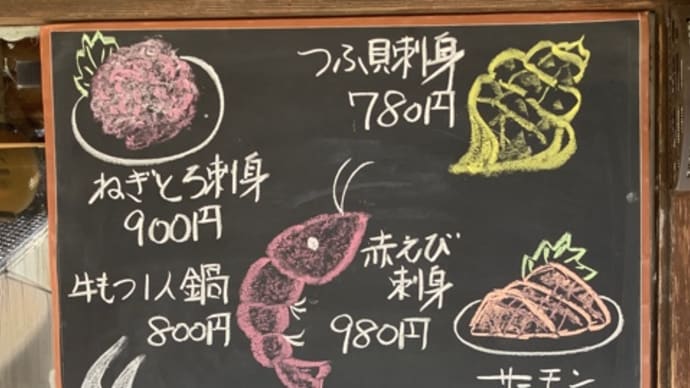 つぶ貝刺身
780円
ねぎとろ刺身
900円
赤えび
刺身
980円
牛もつ1人鍋
800円
サーモン